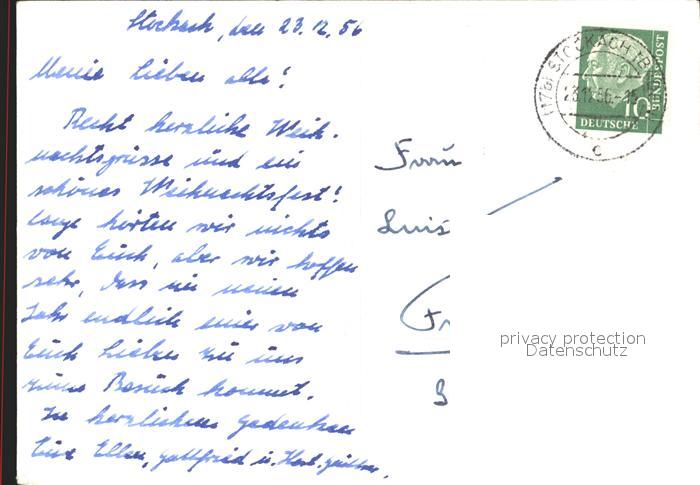 Stockach, den 23.12.56
Meine Lieben alle!
Recht herzliche Weih-
nachtsgrüsse und ein
schönes Weihnachtsfest!
Lange hörten wir nichts
von Euch, aber wir hoffen
sehr, dass im neuen
Jahr endlich eines von
Euch Lieben zu uns
zum Besuch kommt.
In herzlichem Gedenken
Eure Ellen, Gottfried u.
Frau
Luis
STOCKACH
23.12.56
10
DEUTSCHE
BUNDESPOST
c
privacy protection
Datenschutz